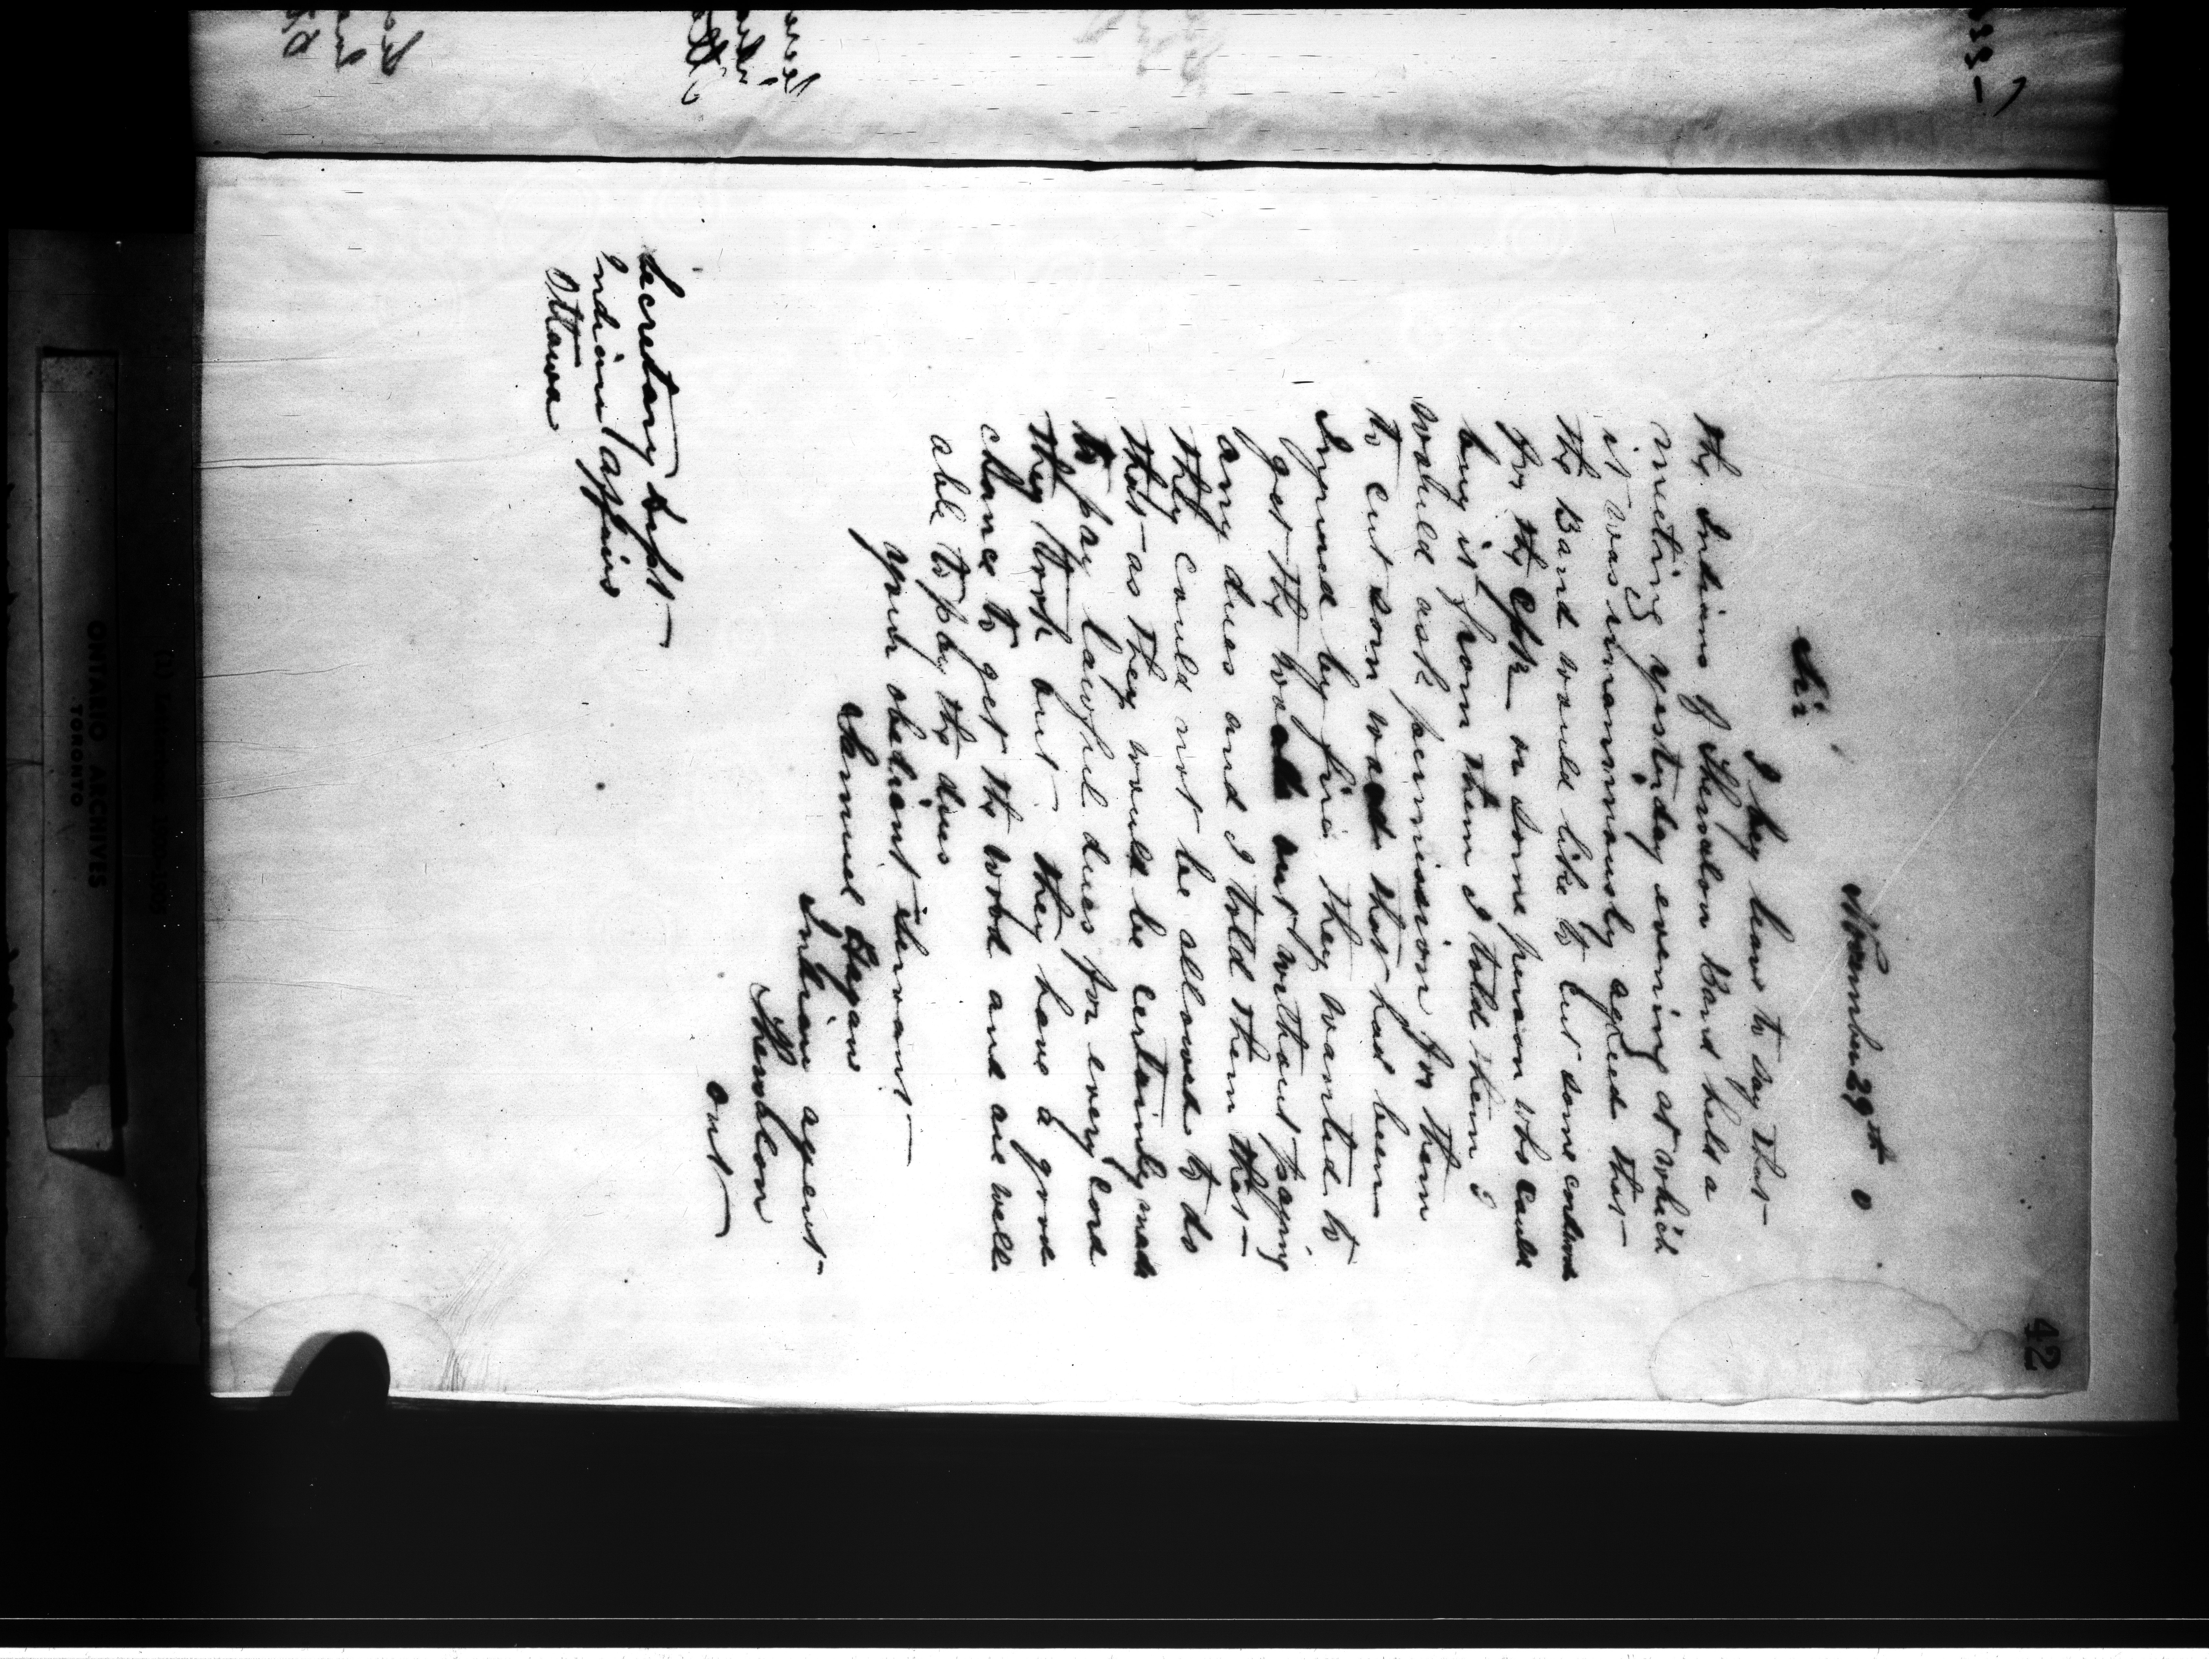 42
November 29th 0
Sir
I beg leave to say that
the Indians of Shewalon Band held a
meeting yesterday evening at which
it was unanimously agreed that
the Band would like to cut some cordwood
for the CPR or some person who could
buy it from them I told them I
would ask permission for them
to cut som wood that had been
Injured by fire they wanted to
get the wood out without paying
any dues and I told them that
they could not be allowed to do
that as they would be certainly made
to pay lawful dues for every cord
they took out they have a good
chance to get the wood and are well
able to pay the dues
your obedient servant
Samuel Hagan
Indian agent
Thessalon
Ont
Secretary Dept
Indian Affairs
Ottawa
ONTARIO ARCHIVES
TORONTO